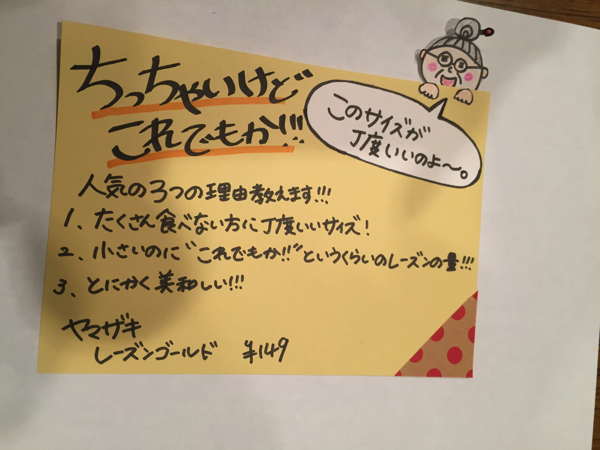 ちっちゃいけど
これでもか!!!
このサイズが
丁度いいのよ〜。
人気の3つの理由教えます!!!
1、たくさん食べない方に丁度いいサイズ!
2、小さいのに"これでもか!!"というくらいのレーズンの量!!!
3、とにかく美味しい!!!
ヤマザキ
レーズンゴールド ¥149